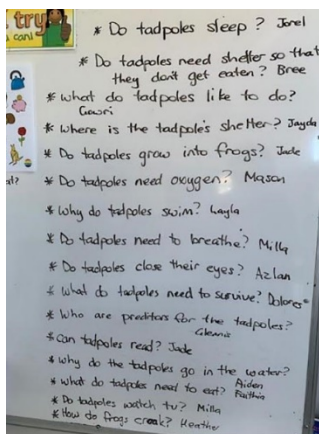 try
u can!
* Do tadpoles sleep? Jorel
* Do tadpoles need shelter so that
they don't get eaten? Bree
* What do tadpoles like to do?
Gowri
* Where is the tadpole's shelter? Jayda
* Do tadpoles grow into frogs? Jade
at?
* Do tadpoles need oxygen? Mason
* Why do tadpoles swim? Layla
* Do tadpoles need to breathe? Milla
* Do tadpoles close their eyes? Azlan
* What do tadpoles need to survive? Dolores
* Who are preditors for the tadpoles?
Glennis
* Can tadpoles read? Jade
* Why do the tadpoles go in the water?
Aiden
* What do tadpoles need to eat?
* Do tadpoles watch tv? Milla
* How do frogs croak? Heather